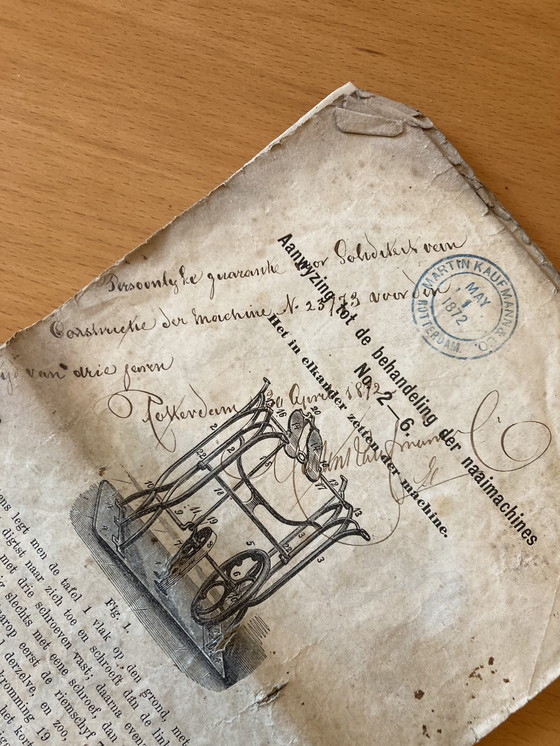 Aanwyzing tot de behandeling der naaimachines
No. 2–6.
Het in elkander zetten der machine.
Persoonlyke guarantie voor Soliditeit van
Constructie der Machine N. 23773 voor den
tyd van drie jaren
Rotterdam 30 April 1872
Mart Kaufmann & Co
MARTIN KAUFMANN & CO.
MAY
1
1872
ROTTERDAM
Fig. 1.
legt men de tafel 1 vlak op den grond,
naar zich toe en schroeft dan de
met drie schroeven vast; daarna
slechts met eene schroef, dan
eerst de riemschyf
derzelve, en zoo,
19
het